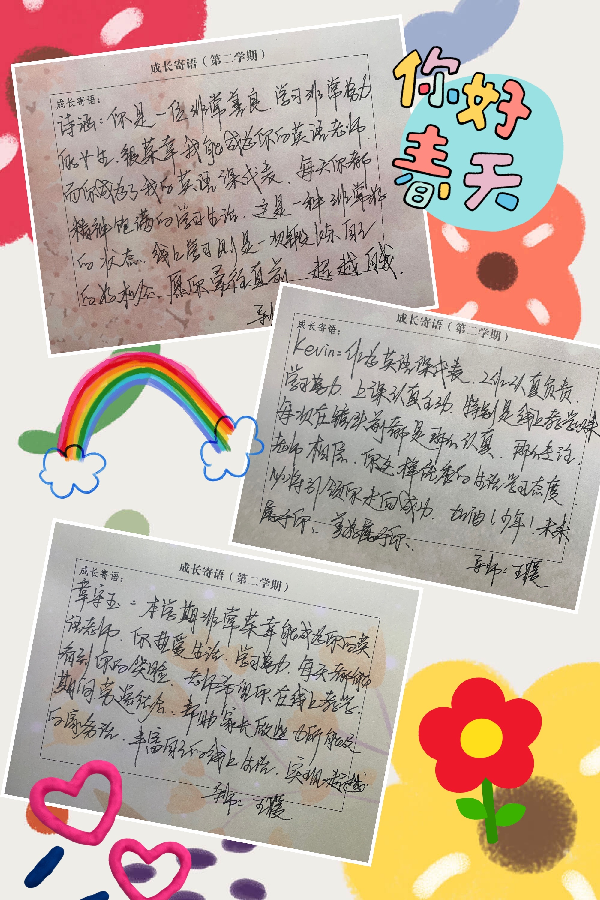 你好
春天
成长寄语（第二学期）
成长寄语：
诗涵：你是一位非常善良 学习非常努力
的学生.很荣幸我能成为你的英语老师
而你成为了我的英语课代表.每天你都
精神饱满的学习生活.这是一种非常好
的状态.线上学习则是一次锻炼自己
的好机会.愿你勇往直前.超越自我.
导师
成长寄语（第二学期）
成长寄语：
Kevin：作为英语课代表.工作认真负责.
学习努力.上课认真主动.特别是线上教学
每次在 都是 认真.
老师相信.你这样优秀的生活学习态度
必将引领你走向成功.加油！少年！未来
属于你、 属于你、
导师：王霞
成长寄语（第二学期）
成长寄语：
本学期非常荣幸能成为你的英
语老师.你热爱生活.学习努力.每天都能
看到你的笑脸.老师希望你在线上教学
期间 帮助家长做些力所能及
的家务活.丰富自己的线上生活.实现超越
导师：王霞